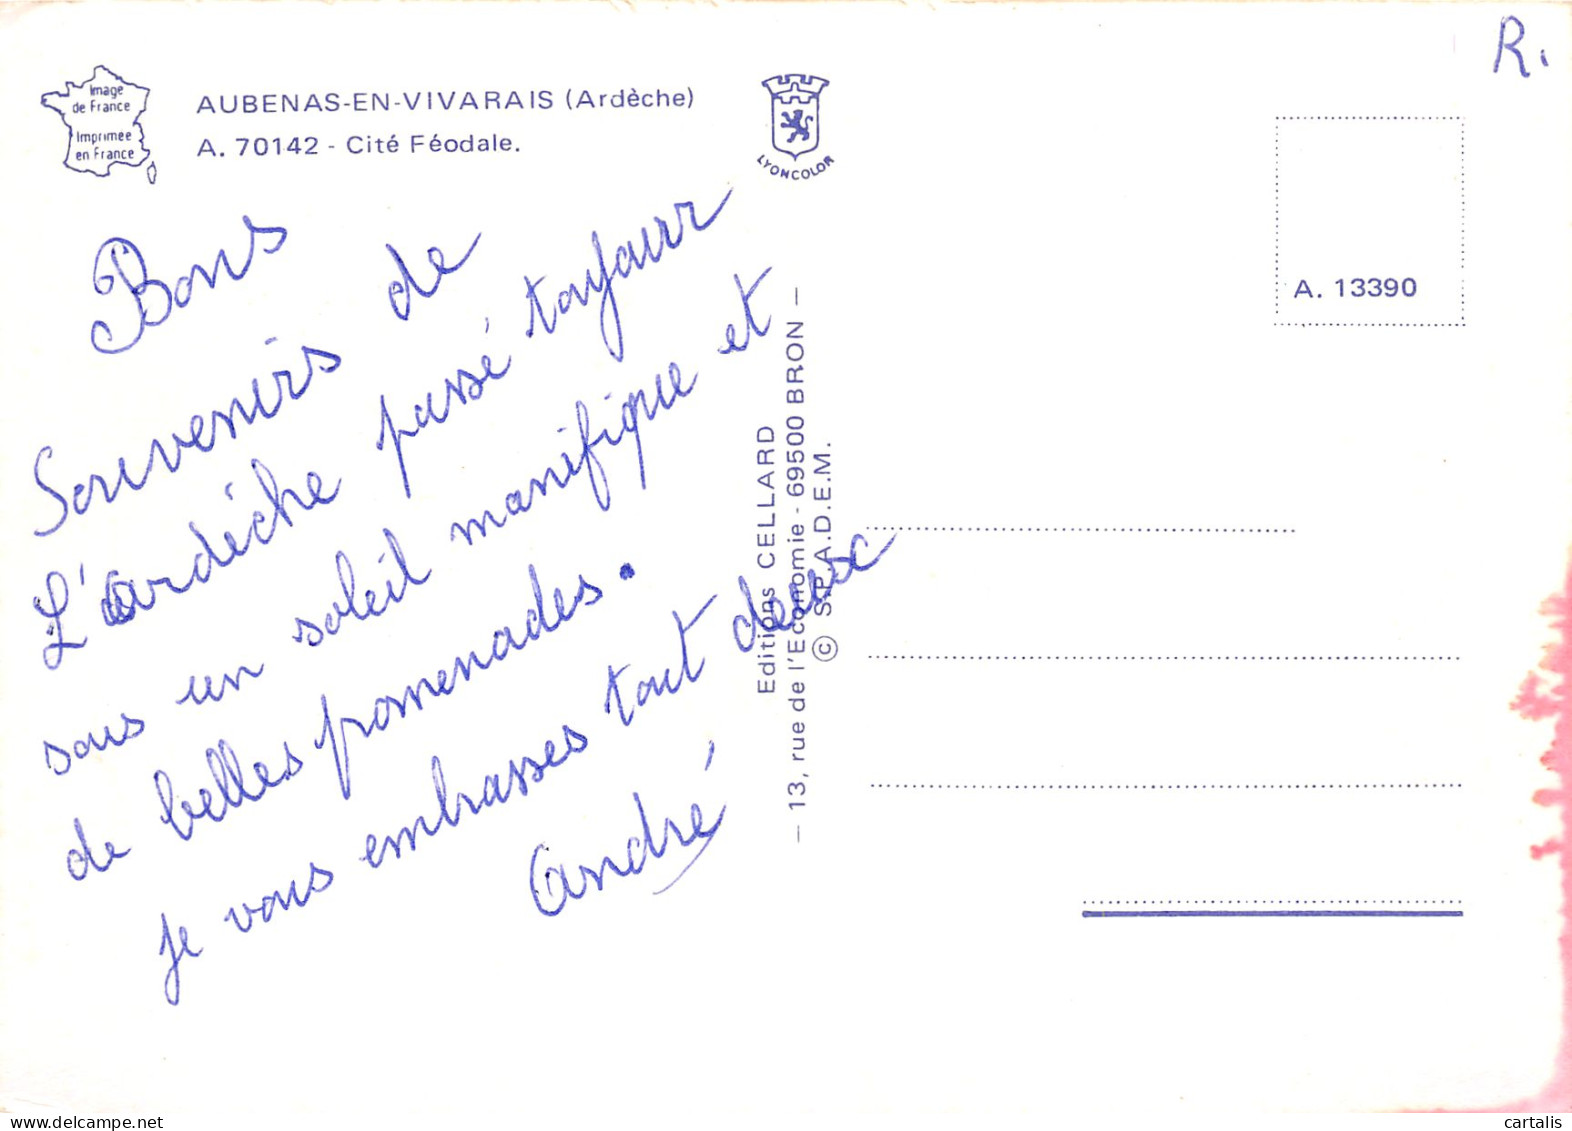 Image
de France
Imprimée
en France
AUBENAS-EN-VIVARAIS (Ardèche)
A. 70142 - Cité Féodale.
LYONCOLOR
R.
A. 13390
Bons
Souvenirs de
L'ardéche passé toyaurr
sous un soleil manifique et
de belles promenades.
je vous embrasses tout deusc
André
Editions CELLARD
— 13, rue de l'Economie - 69500 BRON —
© S.P.A.D.E.M.
cartalis